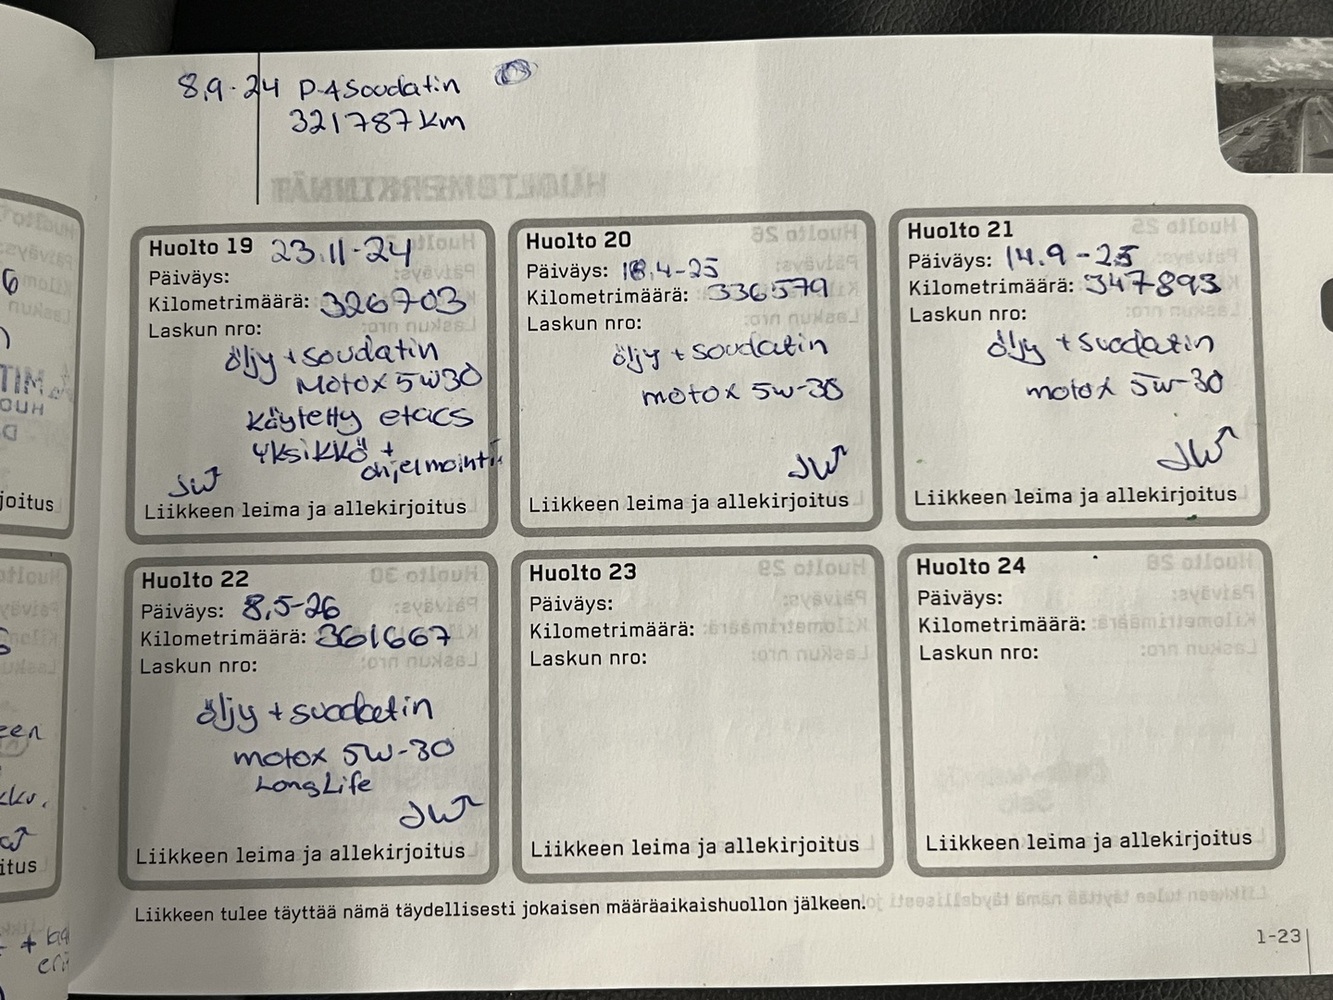 8.9.24 P-ASoudatin
321787 km
HUOLTOMERKINNÄT
Huolto 19 23.11-24
Päiväys:
Kilometrimäärä: 326703
Laskun nro:
öljy + soudatin
Motox 5W30
Käytetty etacs
yksikkö +
ohjelmointi
JW
Liikkeen leima ja allekirjoitus
Huolto 20
Päiväys: 18.4-25
Kilometrimäärä: 336579
Laskun nro:
öljy + soudatin
motox 5w-30
JW
Liikkeen leima ja allekirjoitus
Huolto 21
Päiväys: 14.9-25
Kilometrimäärä: 347893
Laskun nro:
öljy + suodatin
motox 5w-30
JW
Liikkeen leima ja allekirjoitus
Huolto 22
Päiväys: 8,5-26
Kilometrimäärä: 361667
Laskun nro:
öljy + suodatin
motox 5W-30
LongLife
JW
Liikkeen leima ja allekirjoitus
Huolto 23
Päiväys:
Kilometrimäärä:
Laskun nro:
Liikkeen leima ja allekirjoitus
Huolto 24
Päiväys:
Kilometrimäärä:
Laskun nro:
Liikkeen leima ja allekirjoitus
Liikkeen tulee täyttää nämä täydellisesti jokaisen määräaikaishuollon jälkeen.
1-23